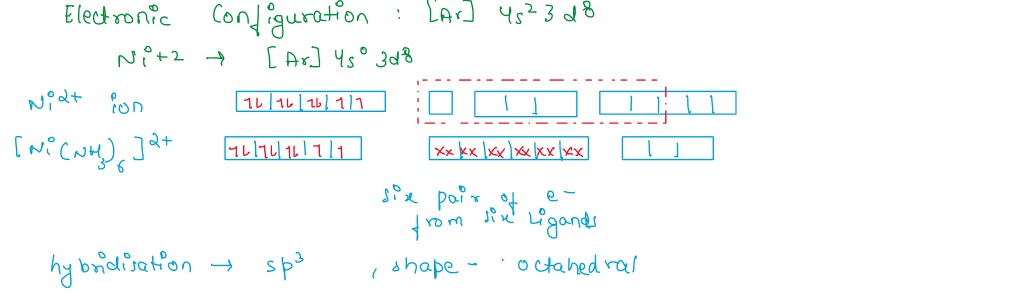 Electronic Configuration : [Ar] 4s² 3d⁸
Ni+2 → [Ar] 4s⁰ 3d⁸
Ni²⁺ ion ↿⇂|↿⇂|↿⇂|↿|↿
[Ni(NH₃)₆]²⁺ ↿⇂|↿⇂|↿⇂|↿|↿ xx|xx|xx|xx|xx|xx
six pair of e-
from six Ligands
hybridisation → sp³ , shape - octahedral